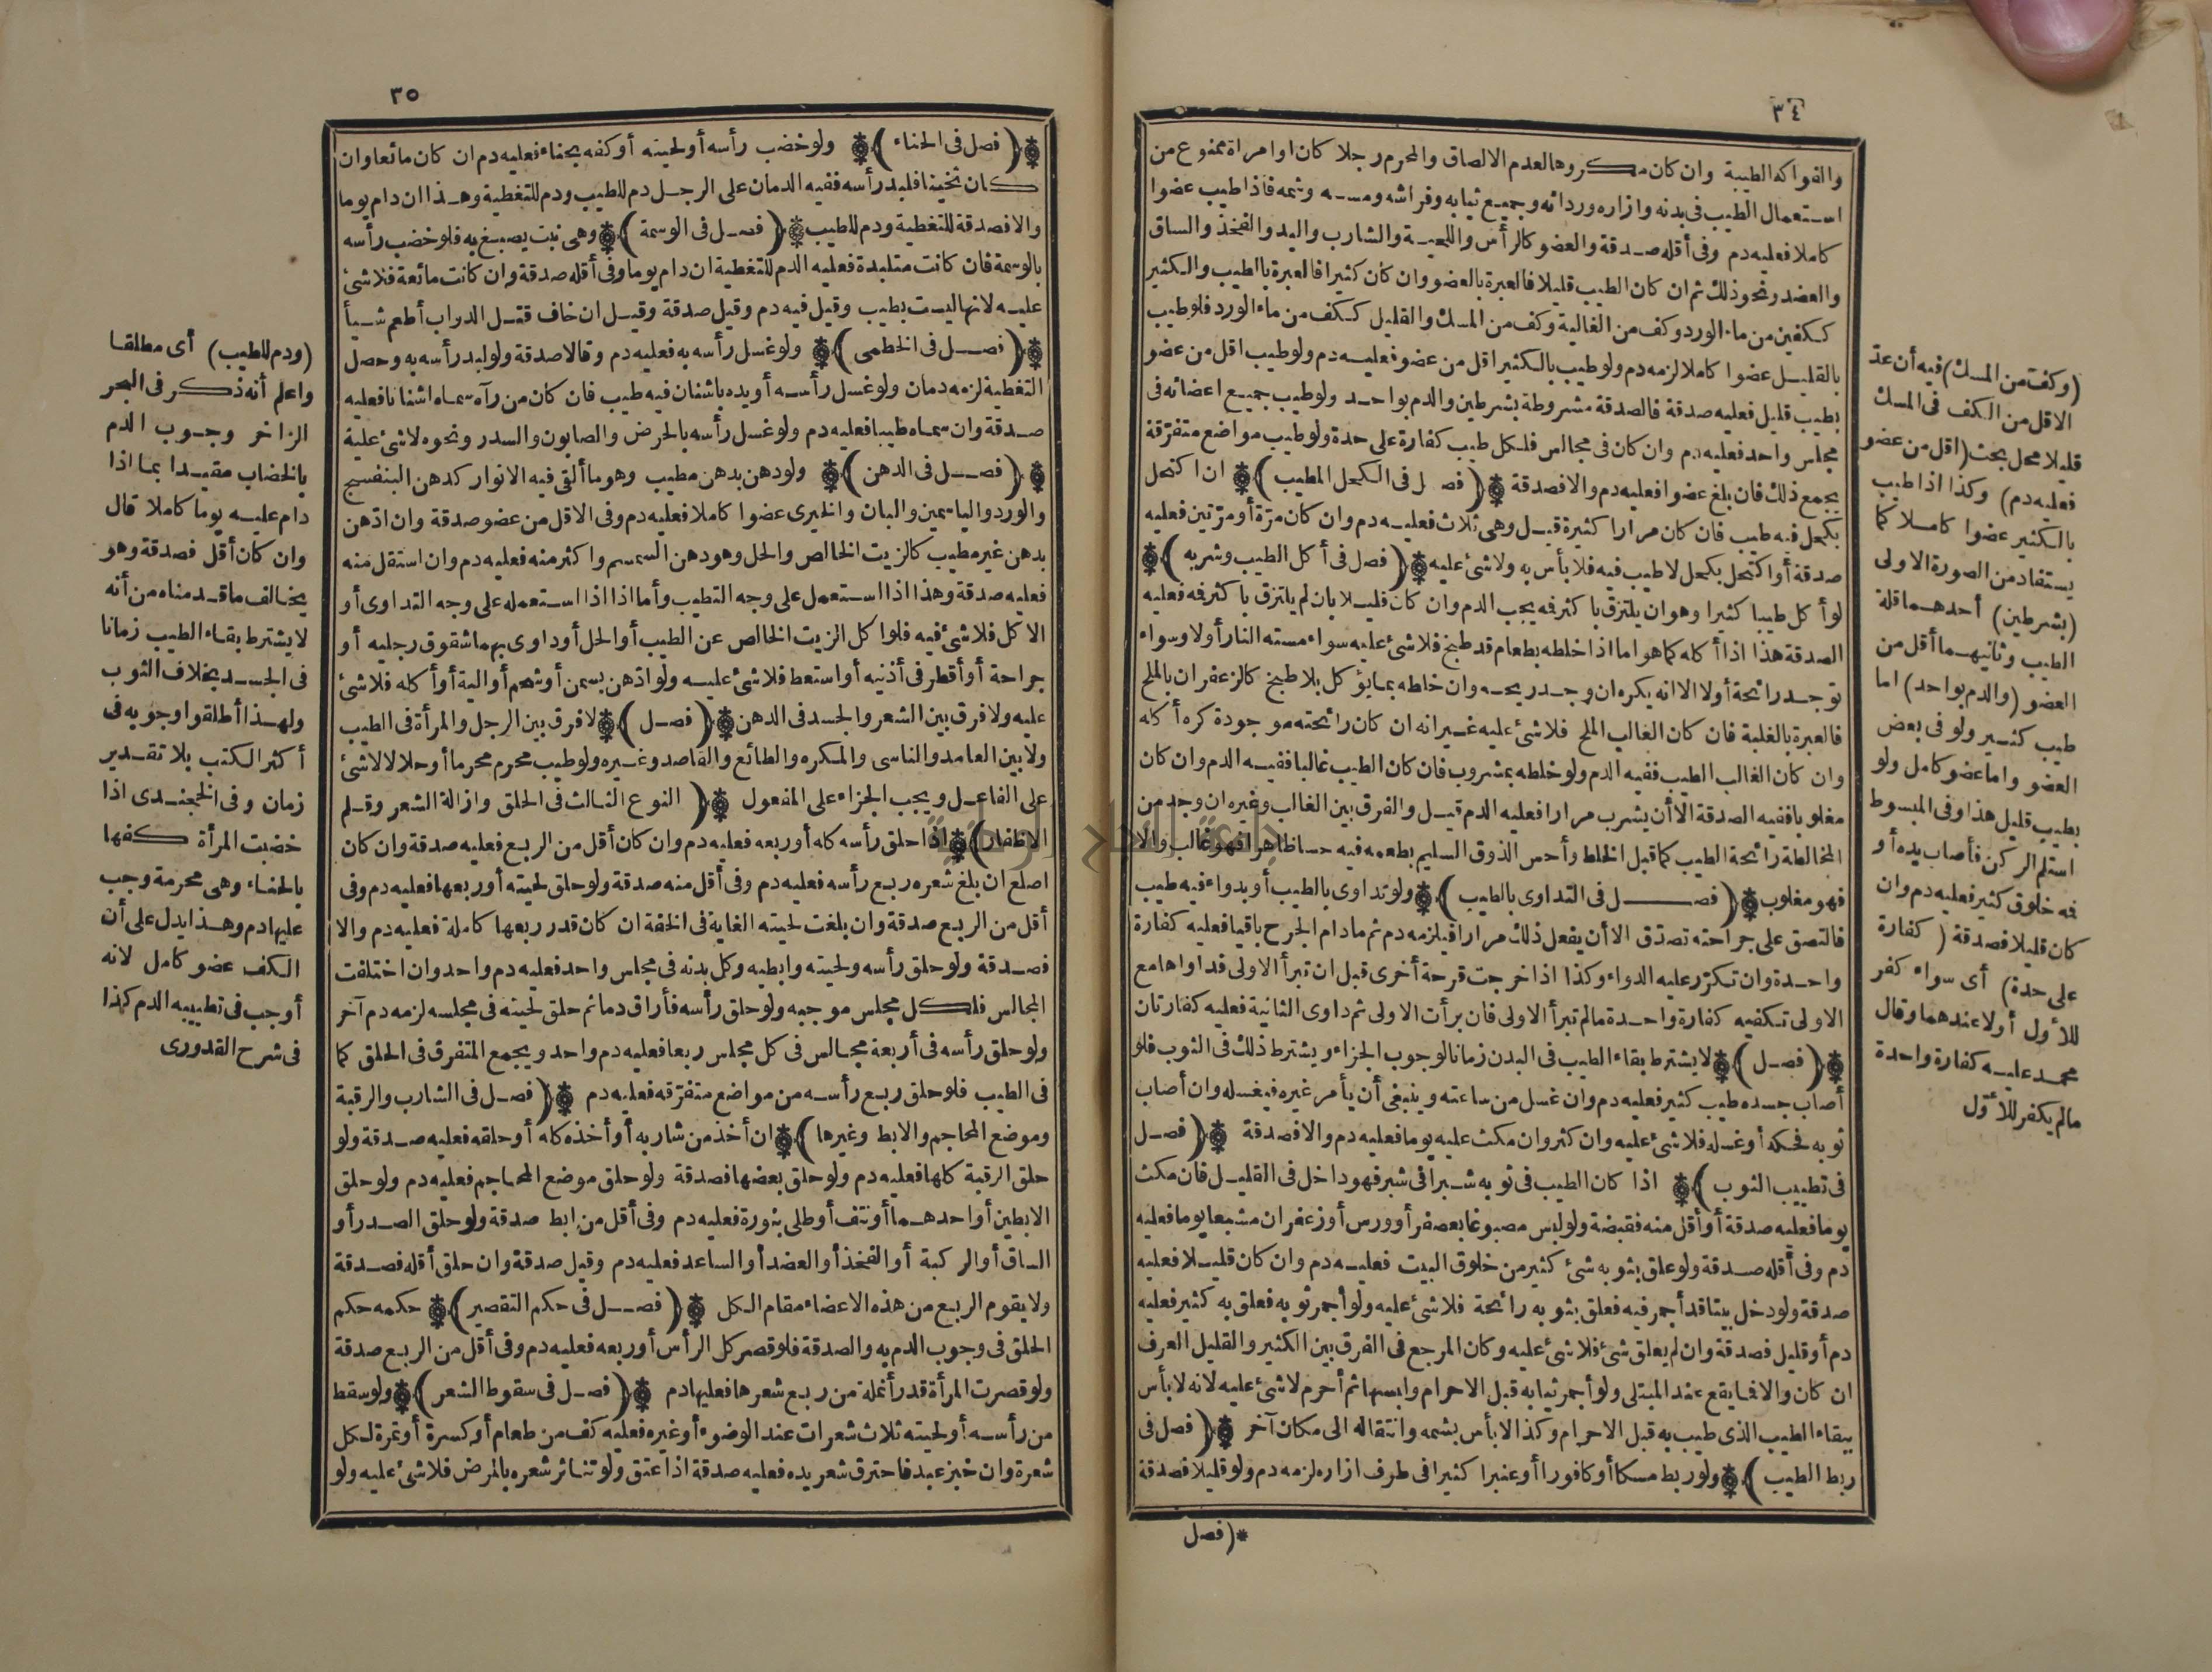 ٣٤
والفواكه الطيبة وان كان مكروها لعدم الالصاق والمحرم رجلا كان اوامرأة ممنوع من
استعمال الطيب فى بدنه وازاره وردائه وجميع ثيابه وفراشه ومسه وشمه فاذا طيب عضوا
كاملا فعليه دم وفى أقله صدقة والعضو كالرأس واللحية والشارب واليد والفخذ والساق
والعضد ونحو ذلك ثم ان كان الطيب قليلا فالعبرة بالعضو وان كان كثيرا فالعبرة بالطيب والكثير
ككفين من ماء الورد وكف من الغالية وكف من المسك والقليل ككف من ماء الورد فلو طيب
بالقليل عضوا كاملا لزمه دم ولو طيب بالكثير اقل من عضو فعليه دم ولو طيب اقل من عضو
بطيب قليل فعليه صدقة فالصدقة مشروطة بشرطين والدم بواحد ولو طيب جميع اعضائه فى
مجلس واحد فعليه دم وان كان فى مجالس فلكل طيب كفارة على حدة ولو طيب مواضع متفرقة
يجمع ذلك فان بلغ عضوا فعليه دم والا فصدقة (فصل فى الكحل المطيب) ان اكتحل
بكحل فيه طيب فان كان مرارا كثيرة قيل وهى ثلاث فعليه دم وان كان مرّة أو مرّتين فعليه
صدقة أو اكتحل بكحل لا طيب فيه فلا بأس به ولا شئ عليه (فصل فى أكل الطيب وشربه)
لو أكل طيبا كثيرا وهو ان يلتزق با كثر فه يجب الدم وان كان قليلا بان لم يلتزق با كثر فه فعليه
الصدقة هذا اذا أكله كما هو اما اذا خلطه بطعام قد طبخ فلا شئ عليه سواء مسته النار أولا وسواء
توجد رائحة أولا الا انه يكره ان وجد ريحه وان خلطه بما يؤكل بلا طبخ كالزعفران بالملح
فالعبرة بالغلبة فان كان الغالب الملح فلا شئ عليه غير انه ان كان رائحته موجودة كره أكله
وان كان الغالب الطيب ففيه الدم ولو خلطه بمشروب فان كان الطيب غالبا ففيه الدم وان كان
مغلوبا ففيه الصدقة الا أن يشرب مرارا فعليه الدم قيل والفرق بين الغالب وغيره ان وجد من
المخالطة رائحة الطيب كما قبل الخلط وأحس الذوق السليم بطعمه فيه حسا ظاهرا فهو غالب والا
فهو مغلوب (فصل فى التداوى بالطيب) ولو تداوى بالطيب أو بدواء فيه طيب
فالتصق على جراحته تصدّق الا أن يفعل ذلك مرارا فيلزمه دم ثم مادام الجرح باقيا فعليه كفارة
واحدة وان تكرّر عليه الدواء وكذا اذا خرجت قرحة أخرى قبل ان تبرأ الاولى فداواها مع
الاولى تكفيه كفارة واحدة مالم تبرأ الاولى فان برأت الاولى ثم داوى الثانية فعليه كفارتان
(فصل) لا يشترط بقاء الطيب فى البدن زمانا لوجوب الجزاء ويشترط ذلك فى الثوب فلو
أصاب جسده طيب كثير فعليه دم وان غسل من ساعته وينبغى أن يأمر غيره فيغسله وان أصاب
ثوبه فحكه أو غسله فلا شئ عليه وان كثر وان مكث عليه يوما فعليه دم والا فصدقة (فصل
فى تطييب الثوب) اذا كان الطيب فى ثوبه شبرا فى شبر فهو داخل فى القليل فان مكث
يوما فعليه صدقة أو أقل منه فقبضة ولو لبس مصبوغا بعصفر أو ورس أو زعفران مشبعا يوما فعليه
دم وفى أقله صدقة ولو علق بثوبه شئ كثير من خلوق البيت فعليه دم وان كان قليلا فعليه
صدقة ولو دخل بيتا قد أجمر فيه فعلق بثوبه رائحة فلا شئ عليه ولو أجمر ثوبه فعلق به كثير فعليه
دم أو قليل فصدقة وان لم يعلق شئ فلا شئ عليه وكان المرجع فى الفرق بين الكثير والقليل العرف
ان كان والا فما يقع عند المبتلى ولو أجمر ثيابه قبل الاحرام ولبسها ثم أحرم لا شئ عليه لانه لا بأس
ببقاء الطيب الذى طيب به قبل الاحرام وكذا لا بأس بشمه وانتقاله الى مكان آخر (فصل فى
ربط الطيب) ولو ربط مسكا أو كافورا أو عنبرا كثيرا فى طرف ازاره لزمه دم ولو قليلا فصدقة
*(فصل
(وكف من المسك) فيه أن عدّ
الاقل من الكف فى المسك
قليلا محل بحث (اقل من عضو
فعليه دم) وكذا اذا طيب
بالكثير عضوا كاملا كما
يستفاد من الصورة الاولى
(بشرطين) أحدهما قلة
الطيب وثانيهما أقل من
العضو (والدم بواحد) اما
طيب كثير ولو فى بعض
العضو واما عضو كامل ولو
بطيب قليل هذا وفى المبسوط
استلم الركن فأصاب يده أو
فه خلوق كثير فعليه دم وان
كان قليلا فصدقة (كفارة
على حدة) أى سواء كفر
للأول أولا عندهما وقال
محمد عليه كفارة واحدة
مالم يكفر للأوّل
٣٥
(فصل فى الحناء) ولو خضب رأسه أو لحيته أو كفه بحناء فعليه دم ان كان مائعا وان
كان ثخينا فلبد رأسه ففيه الدمان على الرجل دم للطيب ودم للتغطية وهذا ان دام يوما
والا فصدقة للتغطية ودم للطيب (فصل فى الوسمة) وهى نبت يصبغ به فلو خضب رأسه
بالوسمة فان كانت متلبدة فعليه الدم للتغطية ان دام يوما وفى أقله صدقة وان كانت مائعة فلا شئ
عليه لانها ليست بطيب وقيل فيه دم وقيل صدقة وقيل ان خاف قتل الدواب أطعم شيأ
(فصل فى الخطمى) ولو غسل رأسه به فعليه دم وقالا صدقة ولو لبد رأسه به وحصل
التغطية لزمه دمان ولو غسل رأسه أو يده باشنان فيه طيب فان كان من رآه سماه اشنانا فعليه
صدقة وان سماه طيبا فعليه دم ولو غسل رأسه بالحرض والصابون والسدر ونحوه لا شئ عليه
(فصل فى الدهن) ولو دهن بدهن مطيب وهو ما ألقى فيه الانوار كدهن البنفسج
والورد والياسمين والبان والخيرى عضوا كاملا فعليه دم وفى الاقل من عضو صدقة وان ادّهن
بدهن غير مطيب كالزيت الخالص والحل وهو دهن السمسم واكثر منه فعليه دم وان استقل منه
فعليه صدقة وهذا اذا استعمل على وجه التطيب وأما اذا اذا استعمله على وجه التداوى أو
الاكل فلا شئ فيه فلو أكل الزيت الخالص عن الطيب أو الحل أو داوى بهما شقوق رجليه أو
جراحة أو أقطر فى أذنيه أو استعط فلا شئ عليه ولو ادّهن بسمن أو شحم أو الية أو أكله فلا شئ
عليه ولا فرق بين الشعر والجسد فى الدهن (فصل) لا فرق بين الرجل والمرأة فى الطيب
ولا بين العامد والناسى والمكره والطائع والقاصد وغيره ولو طيب محرم محرما أو حلالا لا شئ
على الفاعل ويجب الجزاء على المفعول (النوع الثالث فى الحلق وازالة الشعر وقلم
الاظفار) اذا حلق رأسه كله أو ربعه فعليه دم وان كان أقل من الربع فعليه صدقة وان كان
اصلع ان بلغ شعره ربع رأسه فعليه دم وفى أقل منه صدقة ولو حلق لحيته أو ربعها فعليه دم وفى
أقل من الربع صدقة وان بلغت لحيته الغاية فى الخفة ان كان قدر ربعها كاملة فعليه دم والا
فصدقة ولو حلق رأسه ولحيته وابطيه وكل بدنه فى مجلس واحد فعليه دم واحد وان اختلفت
المجالس فلكل مجلس موجبه ولو حلق رأسه فأراق دما ثم حلق لحيته فى مجلسه لزمه دم آخر
ولو حلق رأسه فى أربعة مجالس فى كل مجلس ربعا فعليه دم واحد ويجمع المتفرق فى الحلق كما
فى الطيب فلو حلق ربع رأسه من مواضع متفرّقه فعليه دم (فصل فى الشارب والرقبة
وموضع المحاجم والابط وغيرها) ان أخذ من شاربه أو أخذه كله أو حلقه فعليه صدقة ولو
حلق الرقبة كلها فعليه دم ولو حلق بعضها فصدقة ولو حلق موضع المحاجم فعليه دم ولو حلق
الابطين أو احدهما أو نتف أو طلى بنورة فعليه دم وفى أقل من ابط صدقة ولو حلق الصدر أو
الساق أو الركبة أو الفخذ أو العضد أو الساعد فعليه دم وقيل صدقة وان حلق أقله فصدقة
ولا يقوم الربع من هذه الاعضاء مقام الكل (فصل فى حكم التقصير) حكمه حكم
الحلق فى وجوب الدم به والصدقة فلو قصر كل الرأس أو ربعه فعليه دم وفى أقل من الربع صدقة
ولو قصرت المرأة قدر أنملة من ربع شعرها فعليها دم (فصل فى سقوط الشعر) ولو سقط
من رأسه أو لحيته ثلاث شعرات عند الوضوء أو غيره فعليه كف من طعام أو كسرة أو تمرة لكل
شعرة وان خبز عبد فاحترق شعر يده فعليه صدقة اذا عتق ولو تناثر شعره بالمرض فلا شئ عليه ولو
(ودم للطيب) أى مطلقا
واعلم أنه ذكر فى البحر
الزاخر وجوب الدم
بالخضاب مقيدا بما اذا
دام عليه يوما كاملا قال
وان كان أقل فصدقة وهو
يخالف ما قدمناه من أنه
لا يشترط بقاء الطيب زمانا
فى الجسد بخلاف الثوب
ولهذا أطلقوا وجوبه فى
أكثر الكتب بلا تقدير
زمان وفى الخجندى اذا
خضبت المرأة كفها
بالحناء وهى محرمة وجب
عليها دم وهذا يدل على أن
الكف عضو كامل لانه
أوجب فى تطييبه الدم كذا
فى شرح القدورى